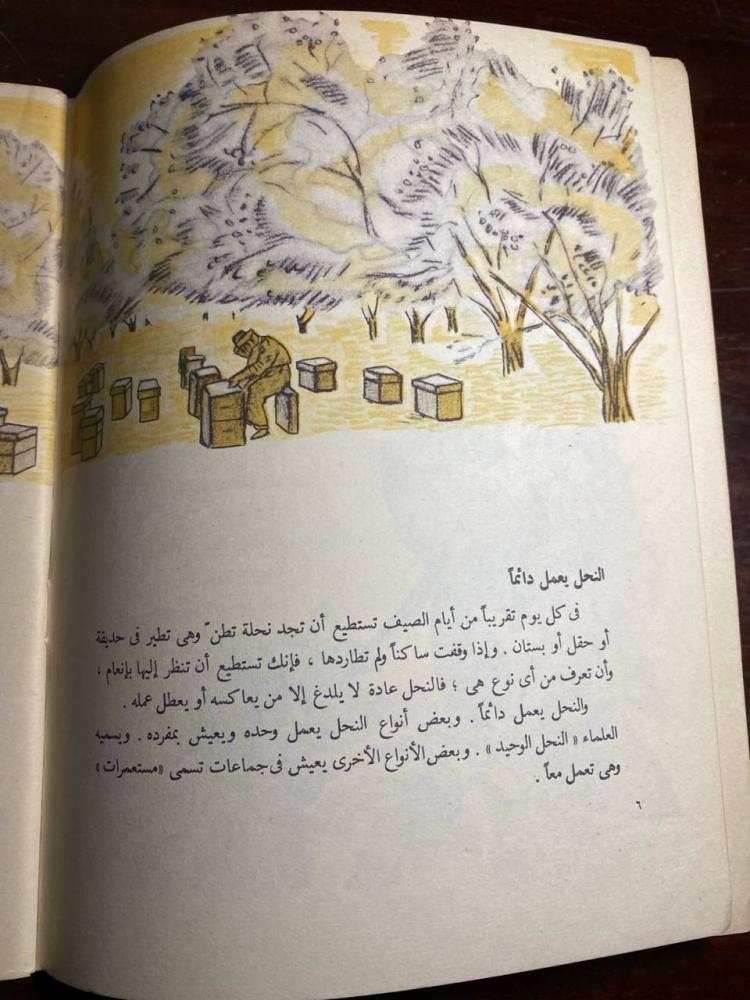 النحل يعمل دائماً
فى كل يوم تقريباً من أيام الصيف تستطيع أن تجد نحلة تطنّ وهى تطير فى حديقة
أو حقل أو بستان . وإذا وقفت ساكناً ولم تطاردها ، فإنك تستطيع أن تنظر إليها بإنعام ،
وأن تعرف من أى نوع هى ؛ فالنحل عادة لا يلدغ إلا من يعاكسه أو يعطل عمله .
والنحل يعمل دائماً . وبعض أنواع النحل يعمل وحده ويعيش بمفرده . ويسميه
العلماء « النحل الوحيد » . وبعض الأنواع الأخرى يعيش فى جماعات تسمى «مستعمرات »
وهى تعمل معاً .
٦